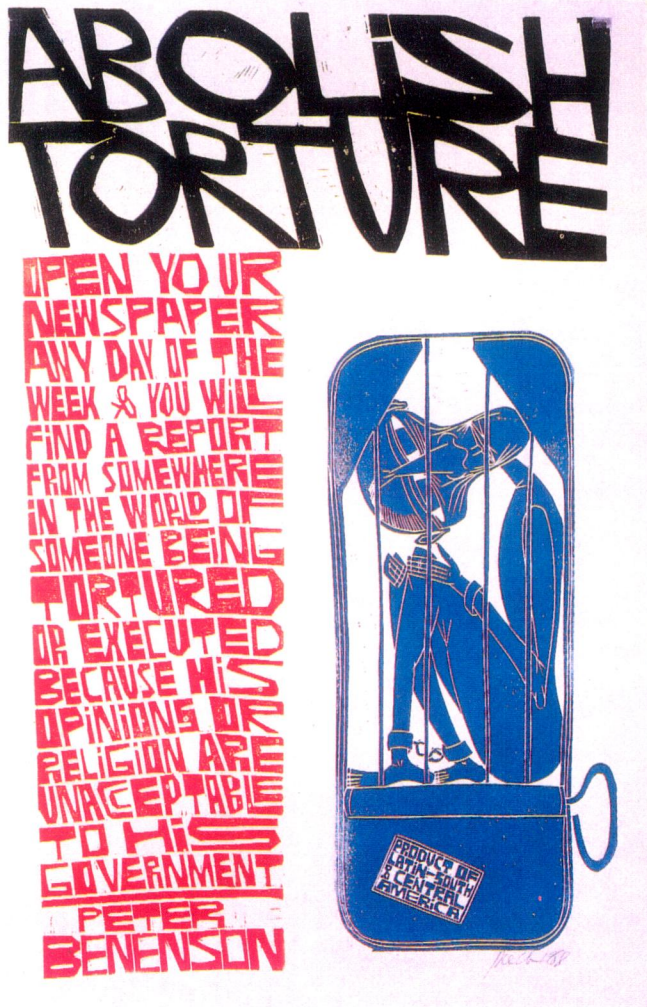 ABOLiSH
TORTURE
OPEN YOUR
NEWSPAPER
ANY DAY OF THE
WEEK & YOU WiLL
FiND A REPORT
FROM SOMEWHERE
iN THE WORLD OF
SOMEONE BEiNG
TORTURED
OR EXECUTED
BECAUSE HiS
OPiNiONS OR
RELiGiON ARE
UNACCEPTABLE
TO HiS
GOVERNMENT
PETER
BENENSON
PRODUCT OF
LATiN-SOUTH
& CENTRAL
AMERiCA